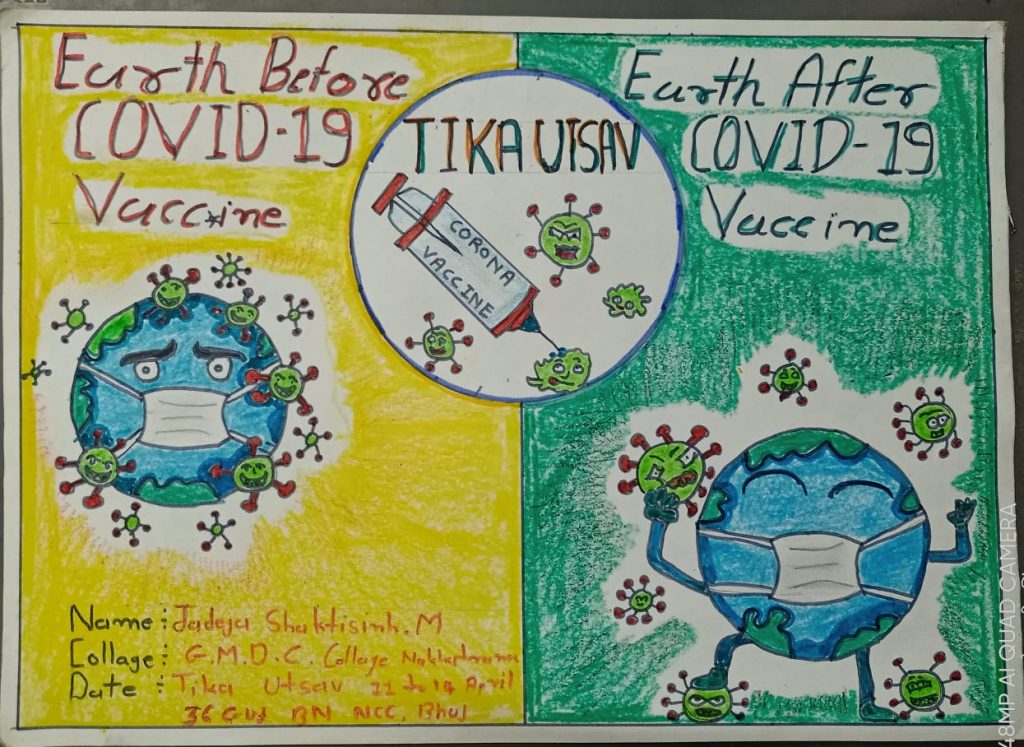 Earth Before
COVID-19
Vaccine
TIKA UTSAV
CORONA
VACCINE
Earth After
COVID-19
Vaccine
Name : Jadeja Shaktisinh.M
Collage : G.M.D.C. Collage Nakhatrana
Date : Tika Utsav 11 to 14 April
36 Guj BN NCC, Bhuj
48MP AI QUAD CAMERA